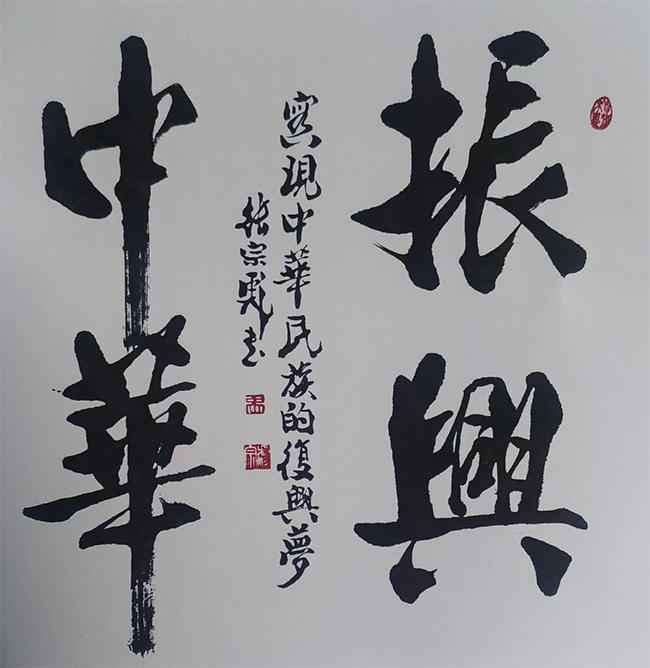 振興
實現中華民族的復興夢
張宗
中華